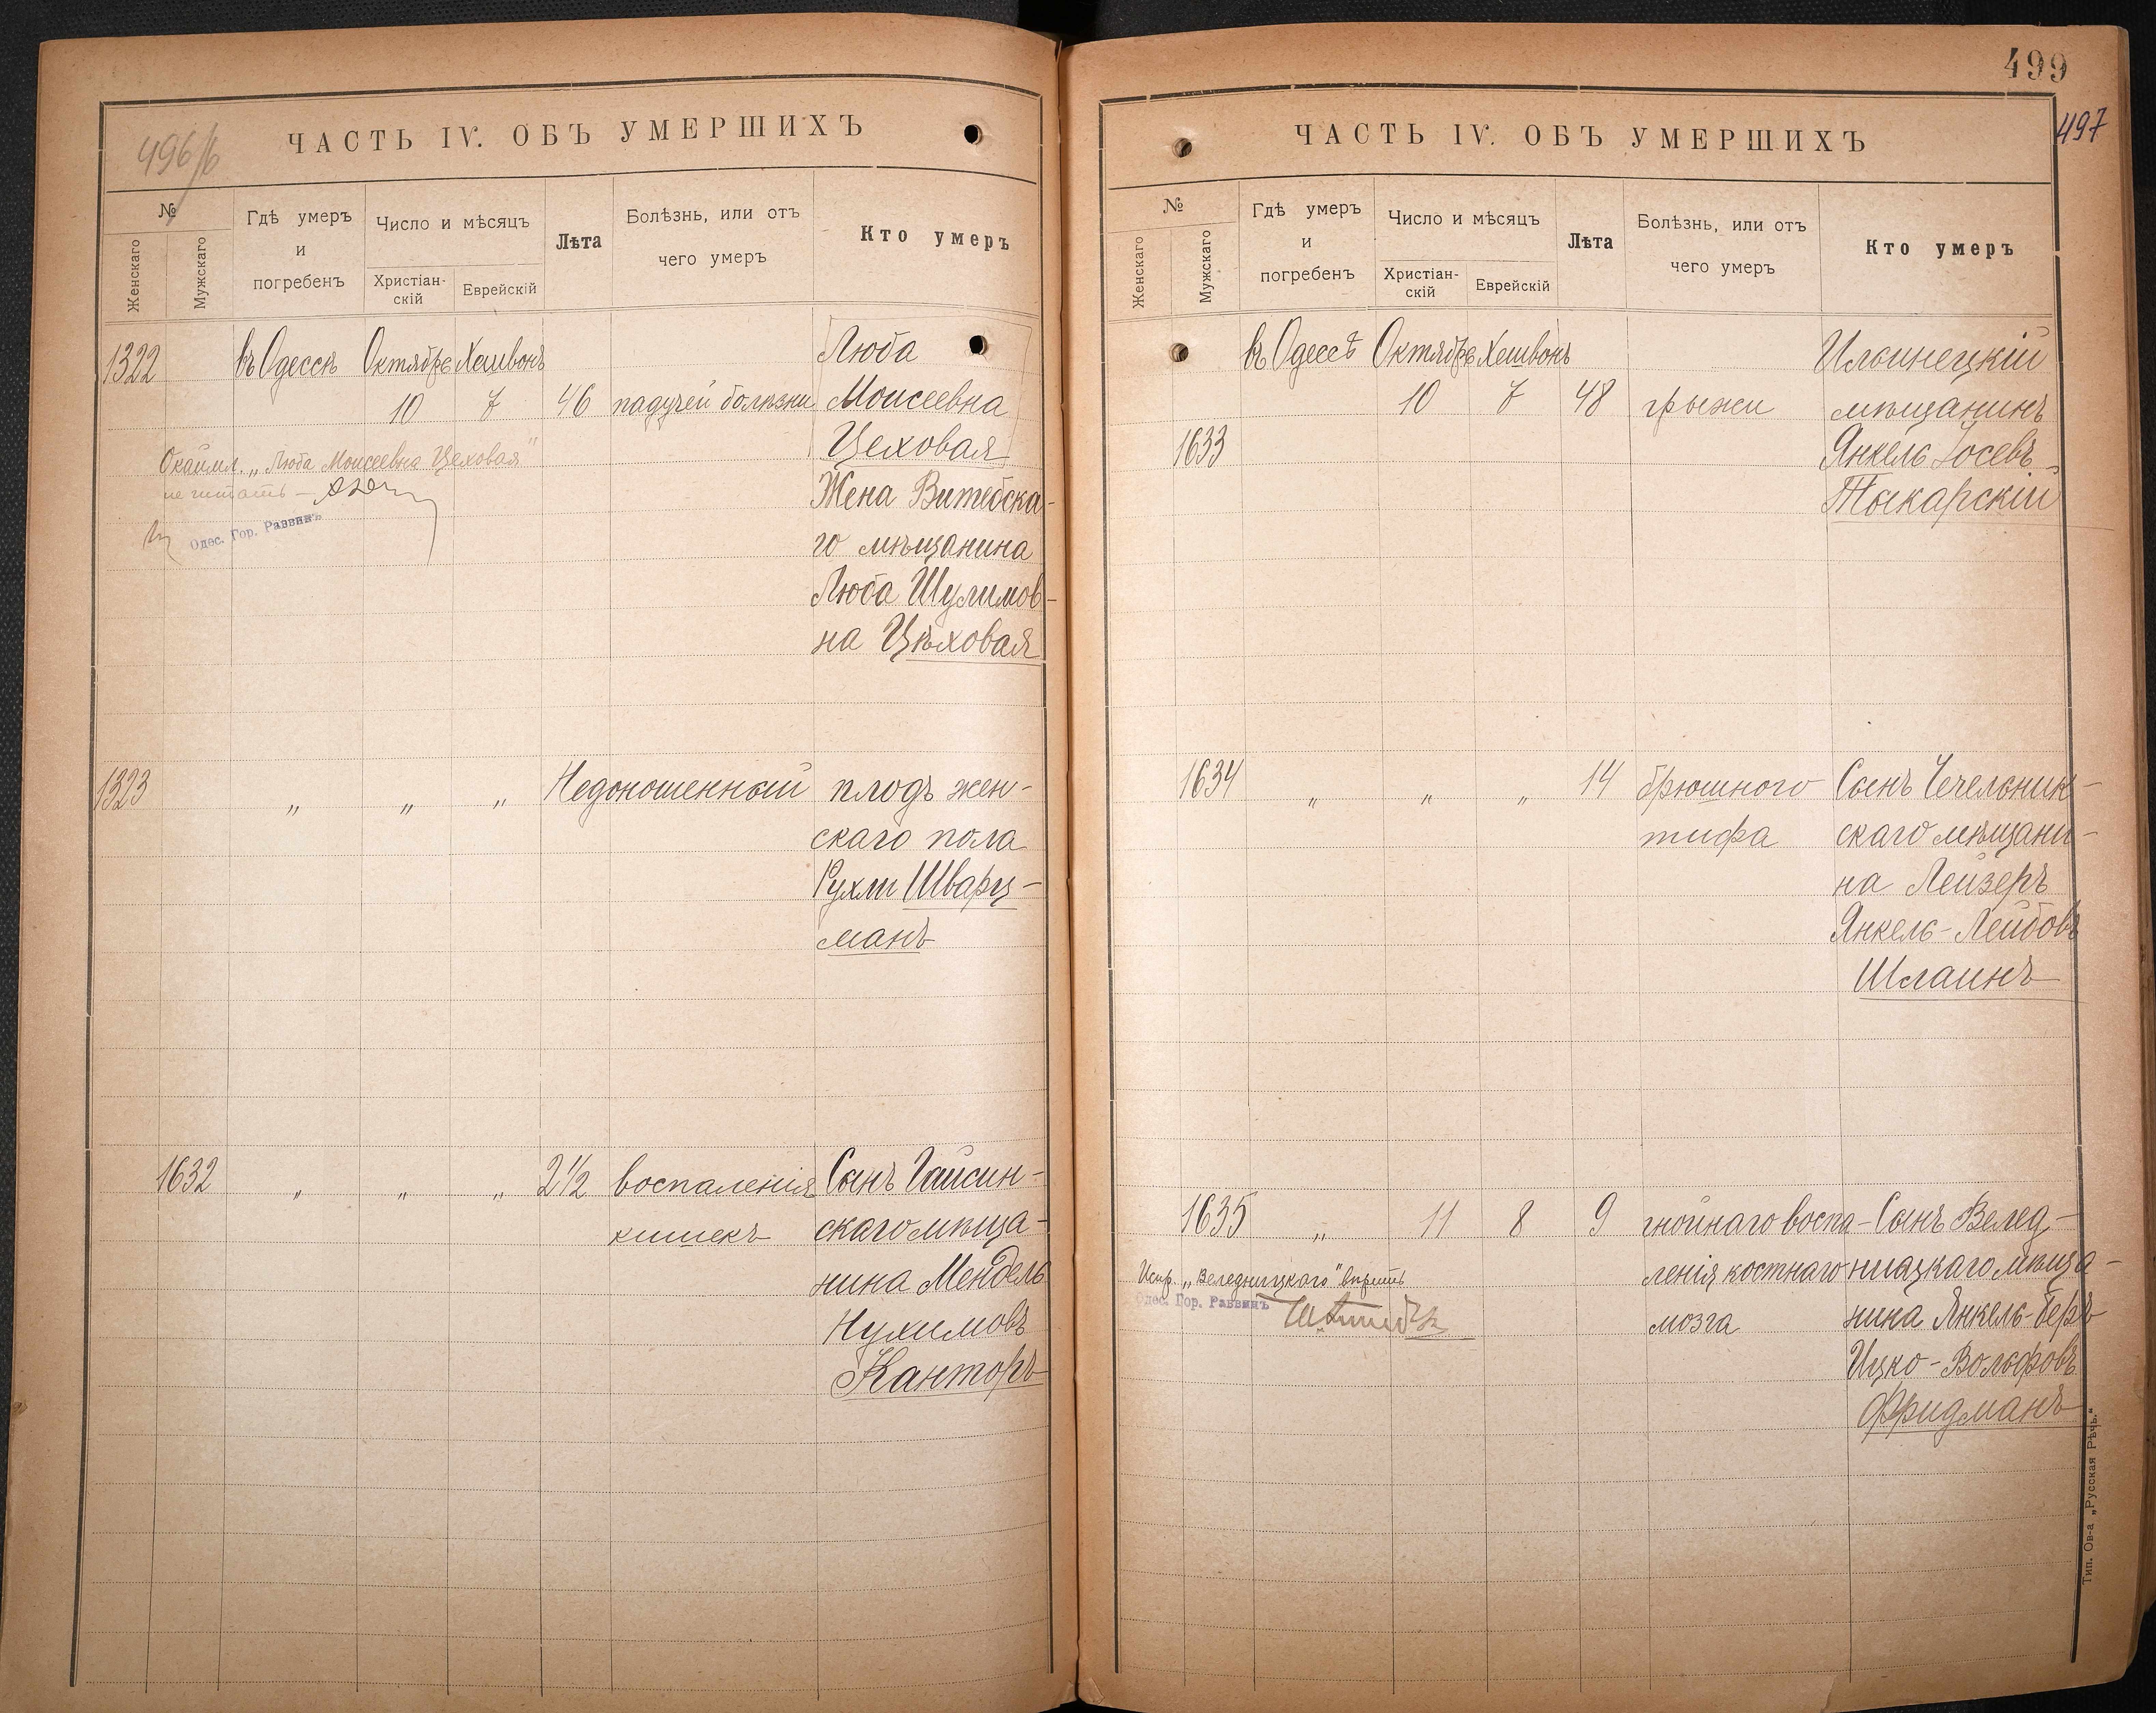 496/б
ЧАСТЬ IV. ОБЪ УМЕРШИХЪ
№
Женскаго
Мужскаго
Гдѣ умеръ
и
погребенъ
Число и мѣсяцъ
Христіан-
скій
Еврейскій
Лѣта
Болѣзнь, или отъ
чего умеръ
Кто умеръ
1322 въ Одессѣ Октябрь Хешвонъ Люба
10 7 46 падучей болѣзни Моисеевна
Цеховая
Окаймл. „Люба Моисеевна Цеховая"
не читать –
Одес. Гор. Раввинъ
Жена Витебска-
го мѣщанина
Люба Шулимов-
на Цѣховая
1323 „ „ „ Недоношенный плодъ жен-
скаго пола
Рухли Шварц-
манъ
1632 „ „ „ 2½ воспаленія Сынъ Гайсин-
кишекъ скаго мѣща-
нина Мендель
Нухимовъ
Канторъ
499
497
ЧАСТЬ IV. ОБЪ УМЕРШИХЪ
№
Женскаго
Мужскаго
Гдѣ умеръ
и
погребенъ
Число и мѣсяцъ
Христіан-
скій
Еврейскій
Лѣта
Болѣзнь, или отъ
чего умеръ
Кто умеръ
въ Одессѣ Октябрь Хешвонъ Ильинецкій
10 7 48 грыжи мѣщанинъ
1633 Янкель Іосевъ
Токарскій
1634 „ „ „ 14 брюшного Сынъ Чечельник-
тифа скаго мѣщани-
на Лейзеръ
Янкель-Лейбовъ
Шлаинъ
1635 „ 11 8 9 гнойнаго воспа- Сынъ Велед-
ленія костнаго ницкаго мѣща-
Испр. „Веледницкаго" вѣрить
Одес. Гор. Раввинъ
мозга нина Янкель-Беръ
Ицко-Вольфовъ
Фридманъ
Тип. Ов-а „Русская Рѣчь."